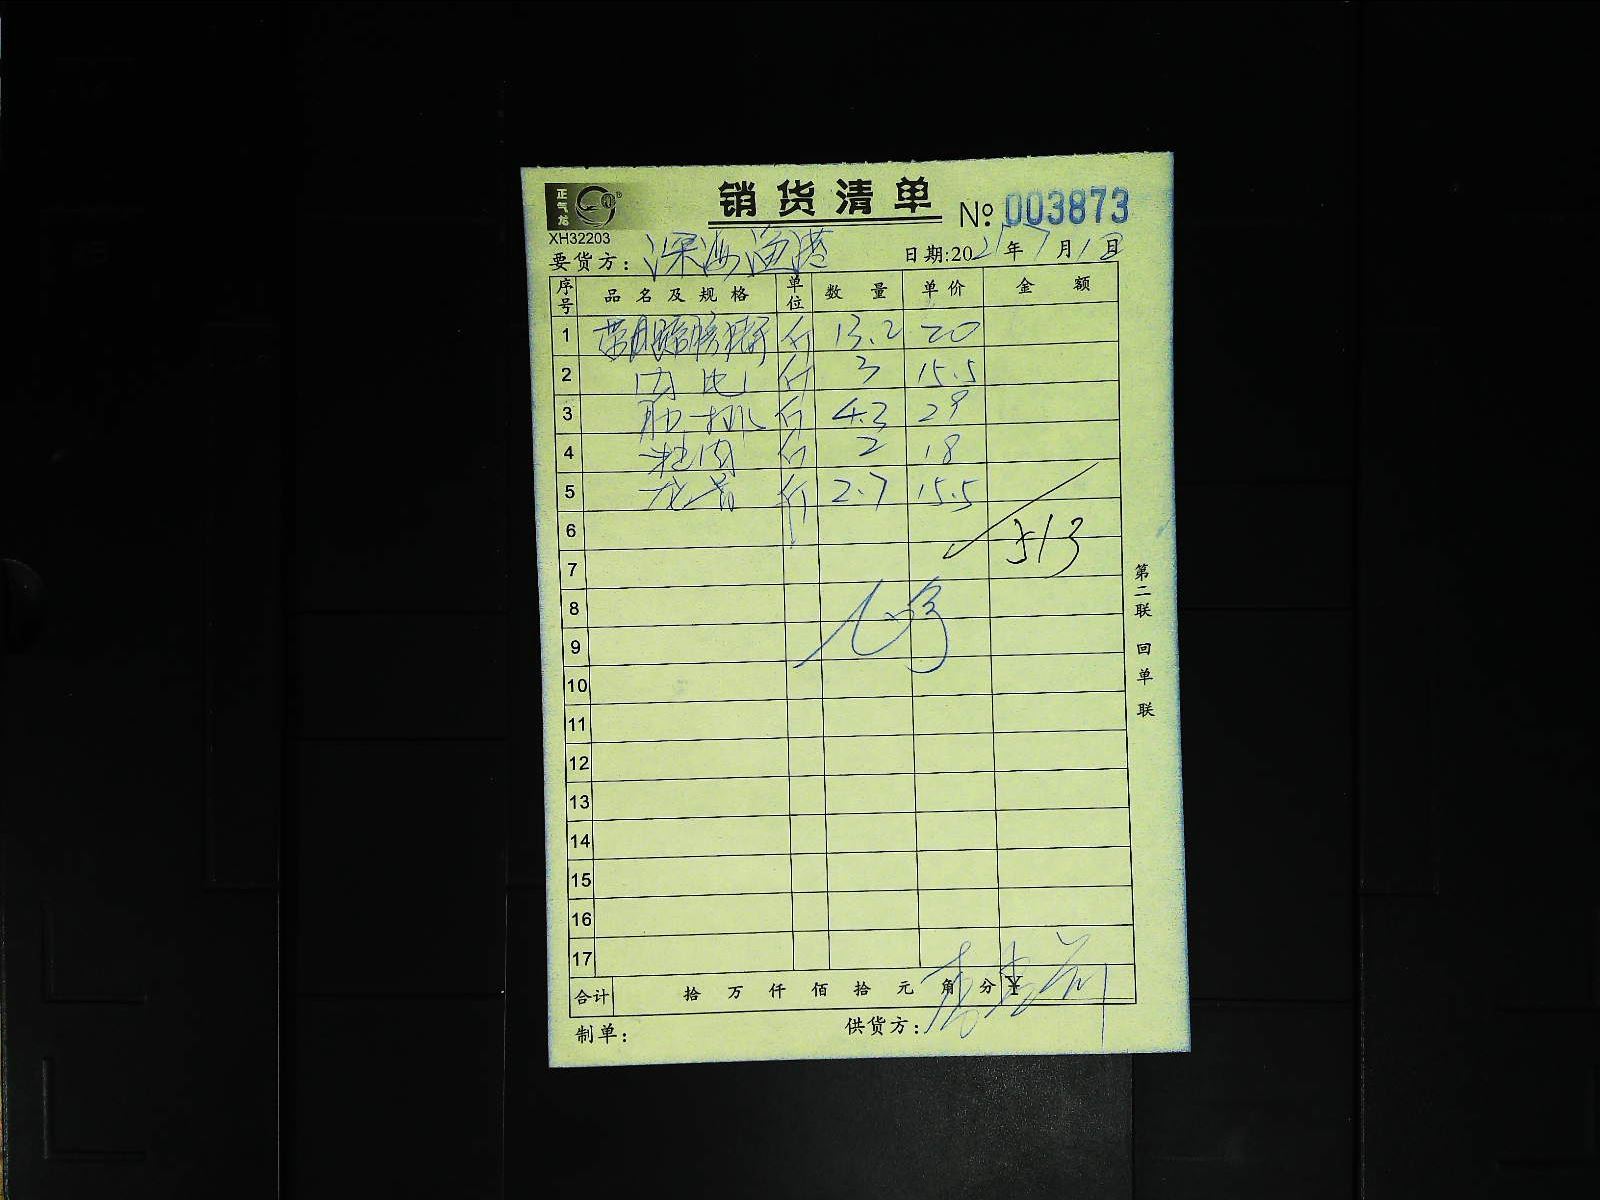 正气龙 ®
XH32203
销货清单 № 003873
要货方: 深海渔港 日期:2021年7月1日
序号 品名及规格 单位 数量 单价 金额
1 斤 13.2 20
2 斤 3 15.5
3 肋排 斤 4.3 29
4 斤 2 18
5 龙骨 斤 2.7 15.5
6 513
7
8
9
10
11
12
13
14
15
16
17
合计 拾 万 仟 佰 拾 元 角 分 ¥
制单: 供货方:
第二联 回单联